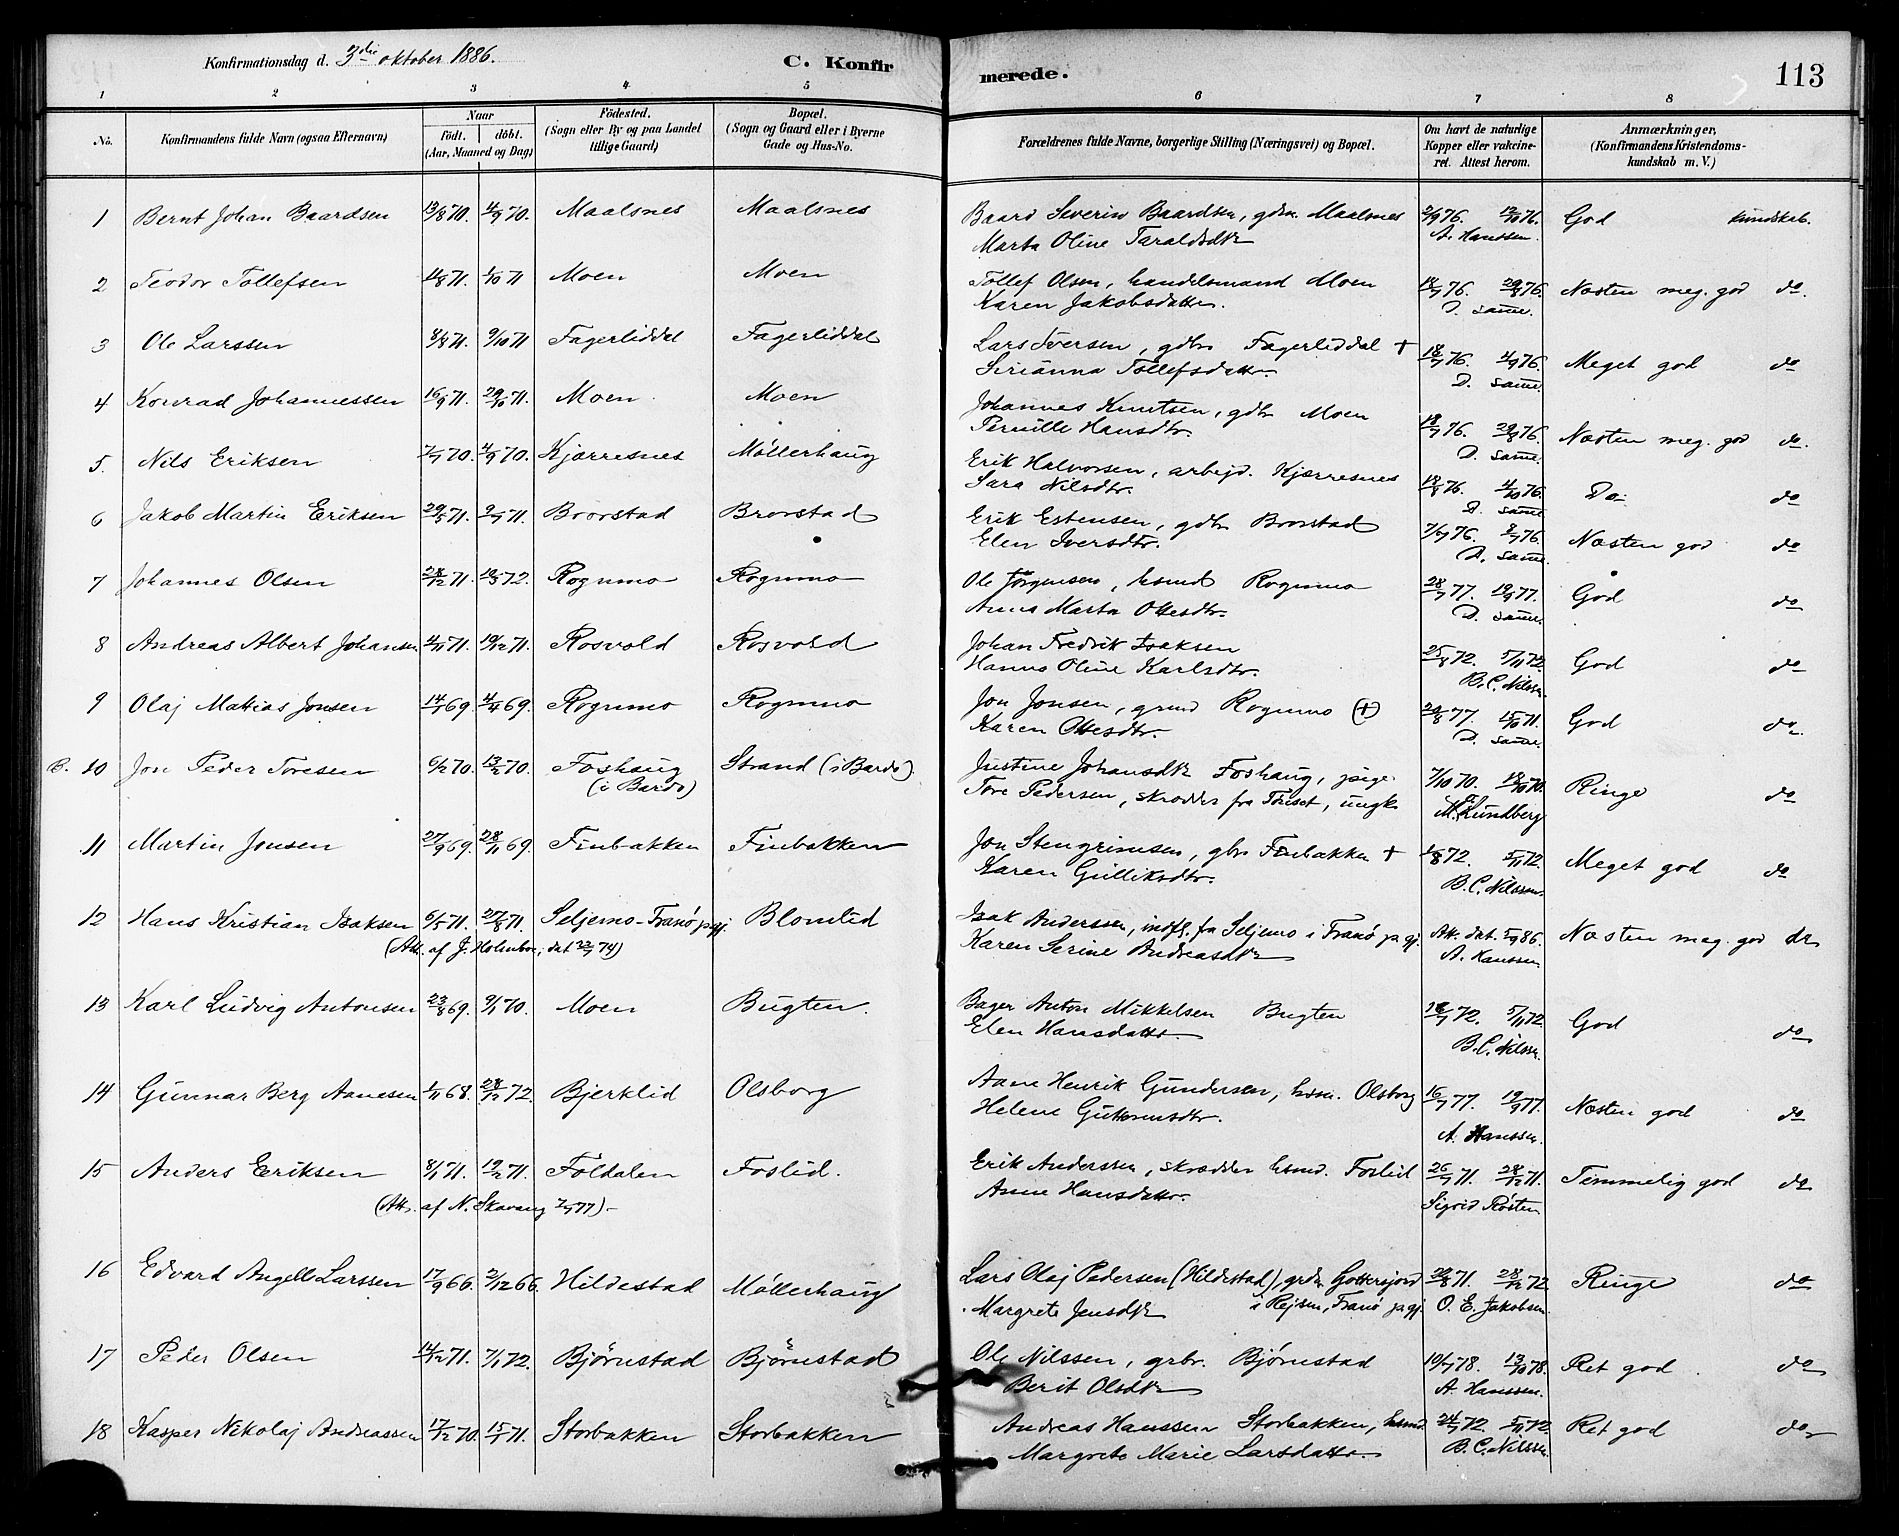 Konfirmationsdag d. 3die oktober 1886. C. Konfirmerede. 113
1 2 3 4 5 6 7 8
No. Konfirmandens fulde Navn (ogsaa Efternavn) Naar födt. döbt. (Aar, Maaned og Dag) Födested. (Sogn eller By og paa Landet tillige Gaard) Bopæl. (Sogn og Gaard eller i Byerne Gade og Hus-No. Forældrenes fulde Navne, borgerlige Stilling (Næringsvei) og Bopæl. Om havt de naturlige Kopper eller vakcineret. Attest herom. Anmærkninger, (Konfirmandens Kristendomskundskab m. V.)
1 Bernt Johan Baardsen 13/8 70. 4/9 70. Maalsnes Maalsnes Baard Severin Baardsen, gdbr. Maalsnes 2/9 76. 12/10 76. God kundskab.
Marta Oline Taraldsdtr A. Hanssen.
2 Teodor Tollefsen 4/8 71. 1/10 71 Moen Moen Tollef Olsen, handelsmand Moen 18/7 76. 29/8 76. Næsten meg. god do.
Karen Jakobsdatter. D. samme.
3 Ole Larssen 8/8 71. 9/10 71 Fagerliddal Fagerliddal Lars Iversen, gdbr Fagerliddal + 18/7 76. 4/9 76. Meget god do
Serianna Tollefsdatter. D. samme.
4 Konrad Johannessen 16/9 71. 29/10 71. Moen Moen Johannes Knutsen, gdbr Moen 18/7 76. 29/8 76. Næsten meg. god do.
Pernille Hansdtr. D. samme.
5. Nils Eriksen 7/7 70. 4/9 70. Kjærresnes Møllerhaug Erik Halvorsen, arbejd. Kjærresnes 18/8 76. 4/10 76. Do. do
Sara Nilsdtr. D. samme
6 Jakob Martin Eriksen 29/5 71. 9/7 71. Brorstad Brorstad Erik Estensen, gdbr Brorstad 7/6 76. 2/7 76. Næsten god do
Elen Iversdtr. D. samme.
7 Johannes Olsen 28/12 71. 19/5 72. Rognmo Rognmo Ole Jørgensen, husmd Rognmo 28/7 77. 19/9 77. God do
Anne Marta Ottesdtr. D. samme.
8 Andreas Albert Johansen 4/11 71. 19/12 71. Rosvold Rosvold Johan Fredrik Isaksen 25/8 72. 5/11 72. God do
Hanna Oline Karlsdtr. B. C. Nilssen.
9 Olaj Matias Jonsen 14/1 69. 4/4 69. Rognmo Rognmo Jon Jonsen, grmd Rognmo (+) 29/8 77. 15/10 71. God do.
Karen Ottesdtr. D. samme.
10 Jon Peder Toresen 6/2 70. 13/2 70. Foshaug (i Bardo) Strand (i Bardo). Justine Johansdtr Foshaug, pige. 7/10 70. 18/10 70. Ringe do
Tore Pedersen, skrædder fra Tønset, ungk. M. Lundberg
11 Martin Jonsen 27/9 69. 28/11 69. Finbakken Finbakken Jon Stengrimsen, gbr Finbakken + 1/8 72. 5/11 72. Meget god do
Karen Gulliksdtr. B. C. Nilssen.
12 Hans Kristian Isaksen 6/5 71. 27/8 71. Seljemo-Tranø pgj. Blomlid Isak Anderssen, indfl. fra Seljemo i Tranø pgj. Att. dat. 5/9 86. Næsten meg. god do
(Att. af J. Holmboe, dat 22/7 74) Karen Serine Andreasdtr A. Hanssen.
13 Karl Ludvig Antonsen 23/8 69. 9/1 70. Moen Bugten. Bager Anton Mikkelsen Bugten 18/7 72. 5/11 72. God do
Elen Hansdatter. B. C. Nilssen.
14 Gunnar Berg Aanesen 1/11 68. 28/12 72. Bjerklid Olsborg Aane Henrik Gundersen, husm. Olsborg 16/7 77. 19/9 77. Næsten god do
Helene Guttormsdtr. A. Hanssen.
15 Anders Eriksen 8/1 71. 19/2 71. Foldalen Foslid. Erik Anderssen, skrædder husmd. Foslid 26/7 71. 28/12 71. Temmelig god do
(Att. af N. Skavang 2/7 77). Anne Hansdatter. Sigrid Rosten
16 Edvard Angell Larssen 17/9 66. 2/12 66. Hildestad Møllerhaug Lars Olaj Pedersen (Hildestad), grdr. Gottersjord 20/8 71. 28/12 72. Ringe do
Margrete Jensdtr i Rejsen, Tranø pgj. O. E. Jakobsen.
17 Peder Olsen 14/12 71. 7/1 72. Bjørnstad Bjørnstad Ole Nilssen, grbr. Bjørnstad 19/7 78. 13/10 78. Ret god do
Berit Olsdtr A. Hanssen.
18 Kasper Nikolaj Andreassen 17/12 70. 15/1 71. Storbakken Storbakken Andreas Hanssen Storbakken, husmd. 24/7 72. 5/11 72. Ret god do
Margrete Marie Larsdatter. B. C. Nilssen.